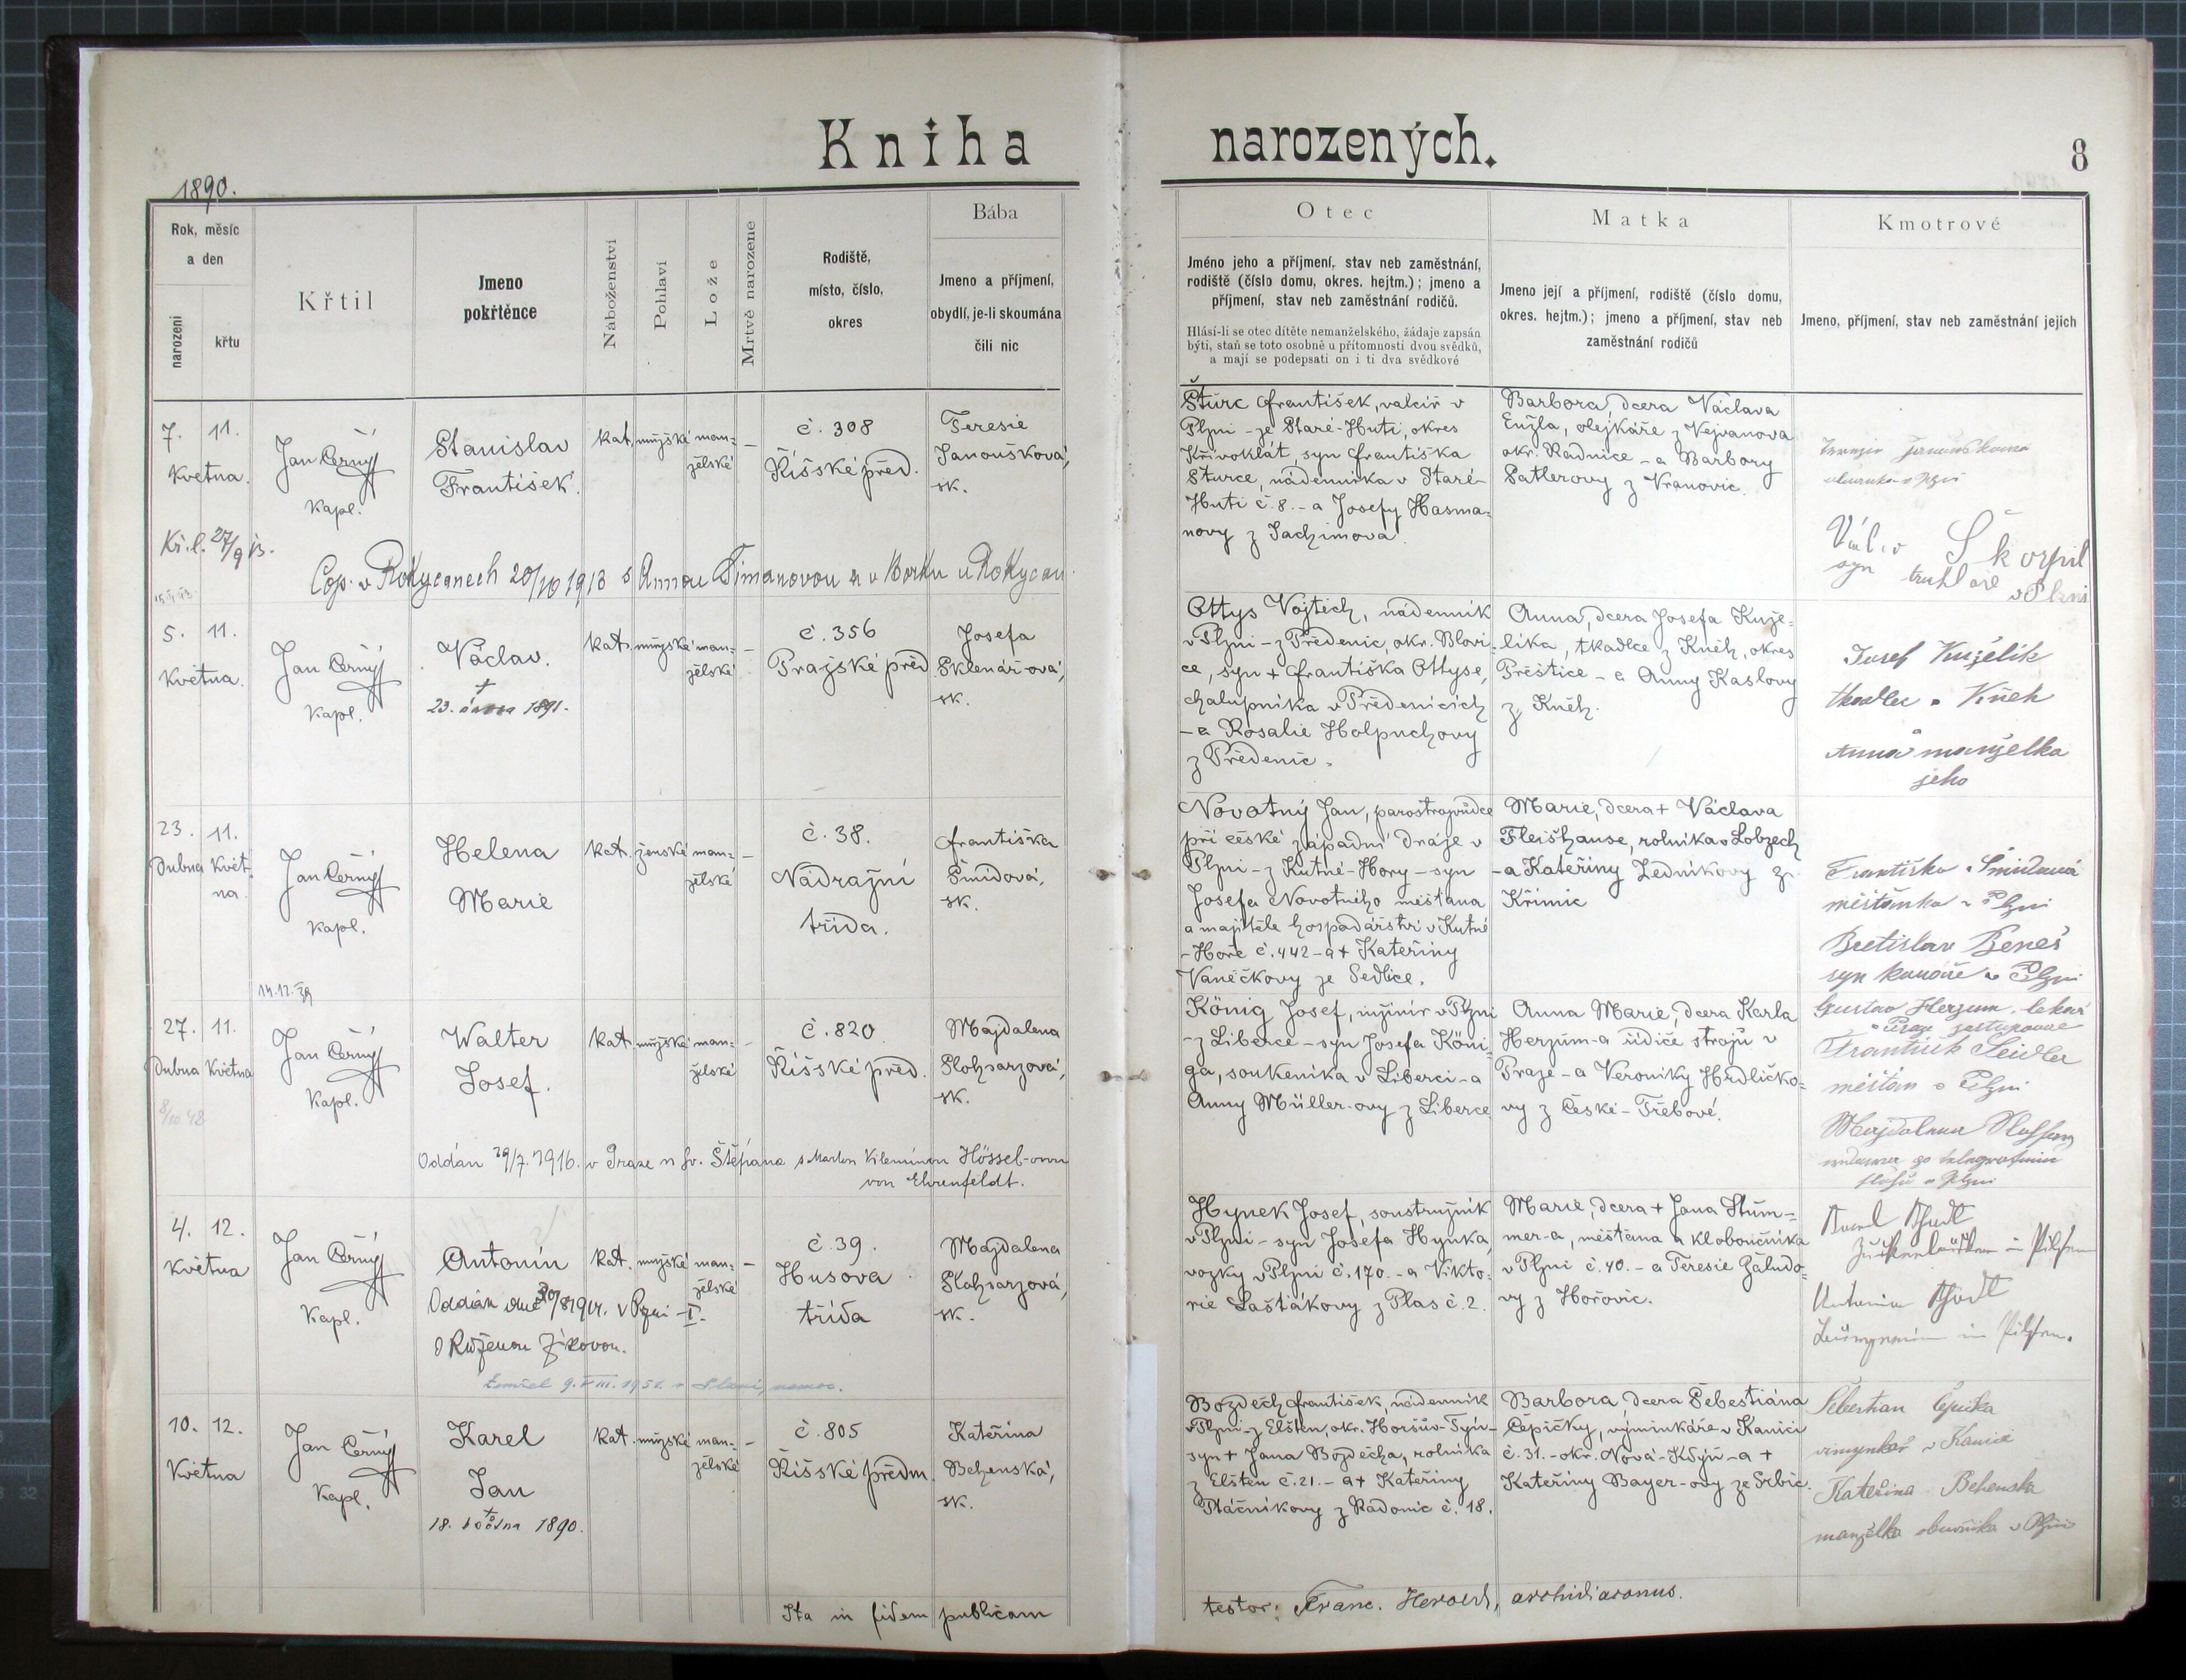 Kniha narozených.
8
1890.
Rok, měsíc
a den
narození
křtu
Křtil
Jmeno
pokřtěnce
Náboženství
Pohlaví
Lože
Mrtvě narozené
Rodiště,
místo, číslo,
okres
Bába
Jmeno a příjmení,
obydlí, je-li skoumána
čili nic
Otec
Jméno jeho a příjmení, stav neb zaměstnání,
rodiště (číslo domu, okres. hejtm.); jmeno a
příjmení, stav neb zaměstnání rodičů.
Hlásí-li se otec dítěte nemanželského, žádaje zapsán
býti, staň se toto osobně u přítomnosti dvou svědků,
a mají se podepsati on i ti dva svědkové
Matka
Jmeno její a příjmení, rodiště (číslo domu,
okres. hejtm.); jmeno a příjmení, stav neb
zaměstnání rodičů
Kmotrové
Jmeno, příjmení, stav neb zaměstnání jejich
7. 11.
Května.
Jan Černý
Kapl.
Stanislav
František.
kat. mužské man-
želské
—
č. 308
Říšské před.
Teresie
Janoušková,
zk.
Šturc František, valcíř v
Plzni - ze Staré-Huti, okres
Křivoklát, syn Františka
Šturce, nádenníka v Staré-
Huti č. 8. - a Josefy Hasma-
novy z Jachimova.
Barbora, dcera Václava
Enžla, olejkáře z Vejvanova
okr. Radnice - a Barbory
Satlerovy z Vranovic.
Škorpil
syn truhláře
v Plzni
Kř. l. 27/9 13.
Cop. v Rokycanech 20/10 1913 s Annou Šimanovou z Borku u Rokycan
5. 11.
Května.
Jan Černý
Kapl.
Václav.
+
23. února 1891.
kat. mužské man-
želské
—
č. 356
Pražské před.
Josefa
Sklenářová,
zk.
Ottys Vojtěch, nádenník
v Plzni - z Předenic, okr. Blovi-
ce, syn + Františka Ottyse,
chalupníka v Předenicích
- a Rosalie Holpuchovy
z Předenic.
Anna, dcera Josefa Kuže-
líka, tkadlce z Kněh, okres
Přeštice - a Anny Kaslovy
z Kněh.
Josef Kuželík
tkadlec v Kněh
Anna manželka
jeho
23. 11.
Dubna Květ-
na.
Jan Černý
Kapl.
Helena
Marie
kat. ženské man-
želské
—
č. 38.
Nádražní
třída.
Františka
Šmídová,
zk.
Novotný Jan, parostrojvůdce
při české západní dráze v
Plzni - z Kutné-Hory - syn
Josefa Novotného měšťana
a majitele hospodářství v Kutné
-Hoře č. 442 - a + Kateřiny
Vaněčkovy ze Sedlice.
Marie, dcera + Václava
Fleišhanse, rolníka v Lobzech
- a Kateřiny Ledníkovy z
Křimic
Františka Šmídová
měšťanka v Plzni
Břetislav Beneš
syn kováře v Plzni
14.12.39
27. 11.
Dubna Května
Jan Černý
Kapl.
Walter
Josef.
kat. mužské man-
želské
—
č. 820
Říšské před.
Majdalena
zk.
König Josef, inžinír v Plzni
- z Liberce - syn Josefa Köni-
ga, soukeníka v Liberci - a
Anny Müller-ovy z Liberce
Anna Marie, dcera Karla
Herzum-a řídiče strojů v
Praze - a Veroniky Hrdličko-
vy z České-Třebové.
Gustav Herzum, lekář
v Praze zastupován
František Seidler
měšťan v Plzni
8/10 48
Oddán 29/7. 1916. v Praze u sv. Štěpána s Hössel-ovou
von Ehrenfeldt.
4. 12.
Května
Jan Černý
Kapl.
Antonín
kat. mužské man-
želské
—
č. 39.
Husova
třída
Majdalena
zk.
Hynek Josef, soustružník
v Plzni - syn Josefa Hynka,
vozky v Plzni č. 170. - a Vikto-
rie Lašťákovy z Plas č. 2.
Marie, dcera + Jana Stüm-
mer-a, měšťana a kloboučníka
v Plzni č. 40. - a Teresie Žáludo-
vy z Hořovic.
in Pilsen
in Pilsen.
Oddán dne 30/8 1914. v Plzni - I.
s Růženou Zikovou.
Zemřel 9. VIII. 1951.
10. 12.
Května
Jan Černý
Kapl.
Karel
Jan
+
18. května 1890.
kat. mužské man-
želské
—
č. 805
Říšské předm.
Kateřina
Behenská,
zk.
Bozděch František, nádenník
v Plzni - z Elšten, okr. Horšův-Týn -
syn + Jana Bozděcha, rolníka
z Elšten č. 21. - a + Kateřiny
Ptáčníkovy z Radonic č. 18.
Barbora, dcera Šebestiána
Čepičky, výminkáře v Kanici
č. 31. - okr. Nová-Kdýň - a +
Kateřiny Bayer-ovy ze Srbic.
Šebestian Čepička
vimynkář v Kanici
Kateřina Behenska
manželka obuvníka v Plzni
Ita in fidem publicam
testor: Franc. Herold, archidiaconus.